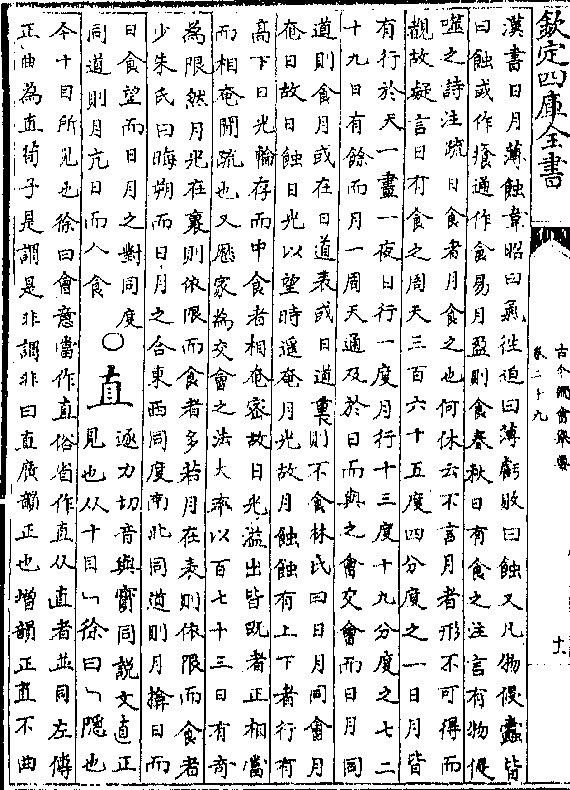 欽定四庫全書
古今韻會舉要
卷二十九
漢書日月薄蝕韋昭曰氣往迫曰薄虧敗曰蝕又凡物侵蠹皆
曰蝕或作𤺊通作食易月盈則食春秋日有食之注言有物侵
噬之詩注疏日食者月食之也何休云不言月者形不可得而
觀故疑言日有食之周天三百六十五度四分度之一日月皆
有行於天一晝一夜日行一度月行十三度十九分度之七二
十九日有餘而月一周天通及於日而與之會交會而日月同
道則食月或在日道表或日道裏則不食林氏曰日月同會月
奄日故日蝕日光以望時遥奄月光故月蝕蝕有上下者行有
高下日光輪存而中食者相奄密故日光溢出皆既者正相當
而相奄間疏也又厯家為交會之法大率以百七十三日有奇
為限然月光在裏則依限而食者多若月在表則依限而食者
少朱氏曰晦朔而日月之合東西同度南北同道則月揜日而
日食望而日月之對同度
同道則月亢日而人食
○直
逐力切音與實同說文直正
見也从十目乚徐曰乚隠也
今十目所見也徐曰會意當作直俗省作直从直者並同左傳
正曲為直荀子是謂是非謂非曰直廣韻正也増韻正直不曲